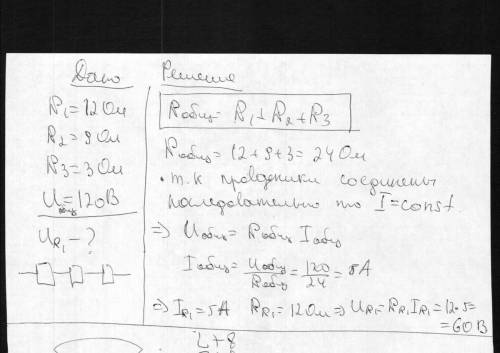 Дано
R₁ = 12 Ом
R₂ = 9 Ом
R₃ = 3 Ом
Uобщ = 120 В
UR₁ - ?
Решение
Rобщ = R₁ + R₂ + R₃
Rобщ = 12 + 9 + 3 = 24 Ом
• т.к проводники соединены
последовательно то I = const.
⇒ Uобщ = Rобщ Iобщ
Iобщ = Uобщ/Rобщ = 120/24 = 5А
⇒ IR₁ = 5А RR₁ = 12 Ом ⇒ UR₁ = RR₁ IR₁ = 12·5=
= 60В